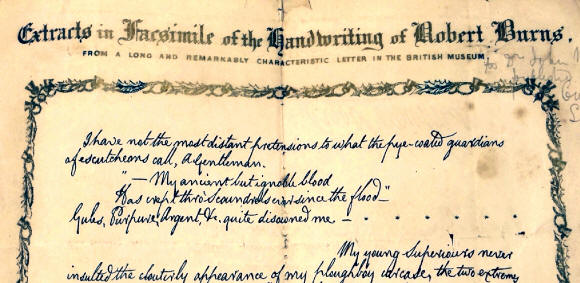 Extracts in Facsimile of the Handwriting of Robert Burns.
FROM A LONG AND REMARKABLY CHARACTERISTIC LETTER IN THE BRITISH MUSEUM.
I have not the most distant pretensions to what the pye-coated guardians
of escutcheons call, A Gentleman.
"— My ancient but ignoble blood
Has crept thro' Scoundrels ever since the flood"—
Gules, Purpure, Argent, &c. quite disowned me — . . . . . .
My young Superiours never
insulted the clouterly appearance of my ploughboy carcase, the two extremes